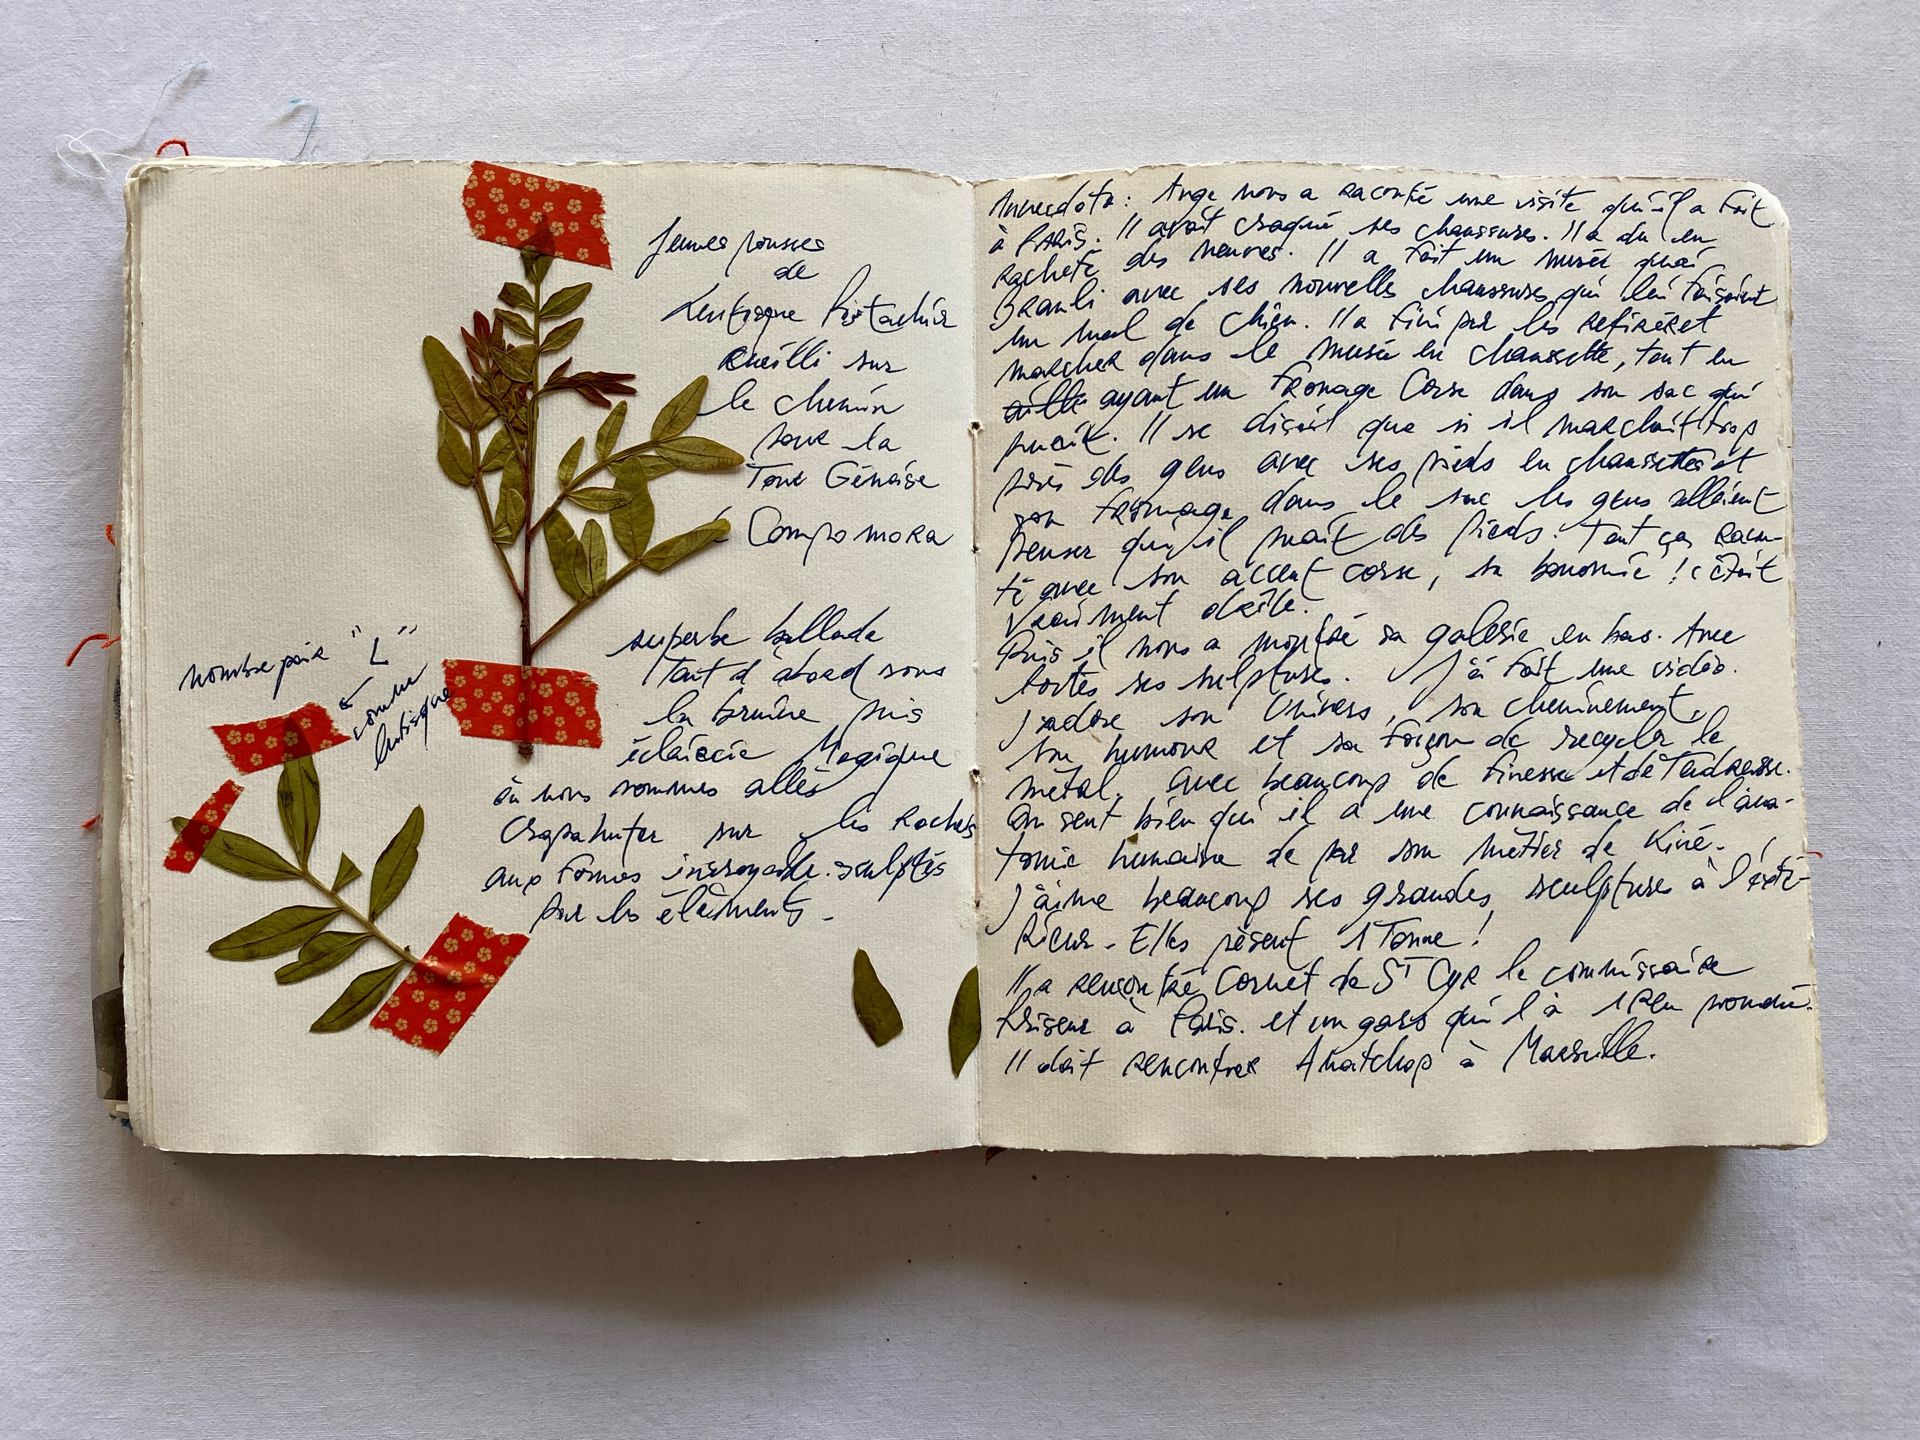 Jeunes pousses
de
Lentisque Pistachier
cueilli sur
le chemin
pour la
Tour Génoise
à Campomora
nombre pair "L"
comme
lentisque
superbe ballade
Tout d'abord sous
la bruine puis
éclaircie Magique
où nous sommes allés
Crapahuter sur les Rochers
aux formes incroyable. sculptés
par les éléments.
Anecdote : Ange nous a raconté une visite qu'il a fait
à Paris. Il avait craqué ses chaussures. Il a du en
racheté des neuves. Il a fait un musée quai
Branli avec ses nouvelles chaussures qui lui faisaient
un mal de chien. Il a fini par les retirer et
marcher dans le musée en chaussette, tout en
ayant un fromage Corse dans son sac qui
puait. Il se disait que si il marchait trop
près des gens avec ses pieds en chaussettes et
son fromage dans le sac les gens allaient
penser qu'il puait des pieds. Tout ça racon-
té avec son accent corse, sa bonomie ! c'était
vraiment drôle.
Puis il nous a montré sa galerie en bas. Avec
toutes ses sculptures. J'ai fait une vidéo.
J'adore son Univers, son cheminement,
son humour et sa façon de recycler le
métal. avec beaucoup de finesse et de Tendresse.
On sent bien qu'il a une connaissance de l'ana-
tomie humaine de par son métier de Kiné.
J'aime beaucoup ses grandes sculptures à l'exté-
rieur. Elles pèsent 1 Tonne !
Il a rencontré Cornet de St Cyr le commissaire
Priseur à Paris. et un gars qui l'a 1 peu
Il doit rencontrer à Marseille.